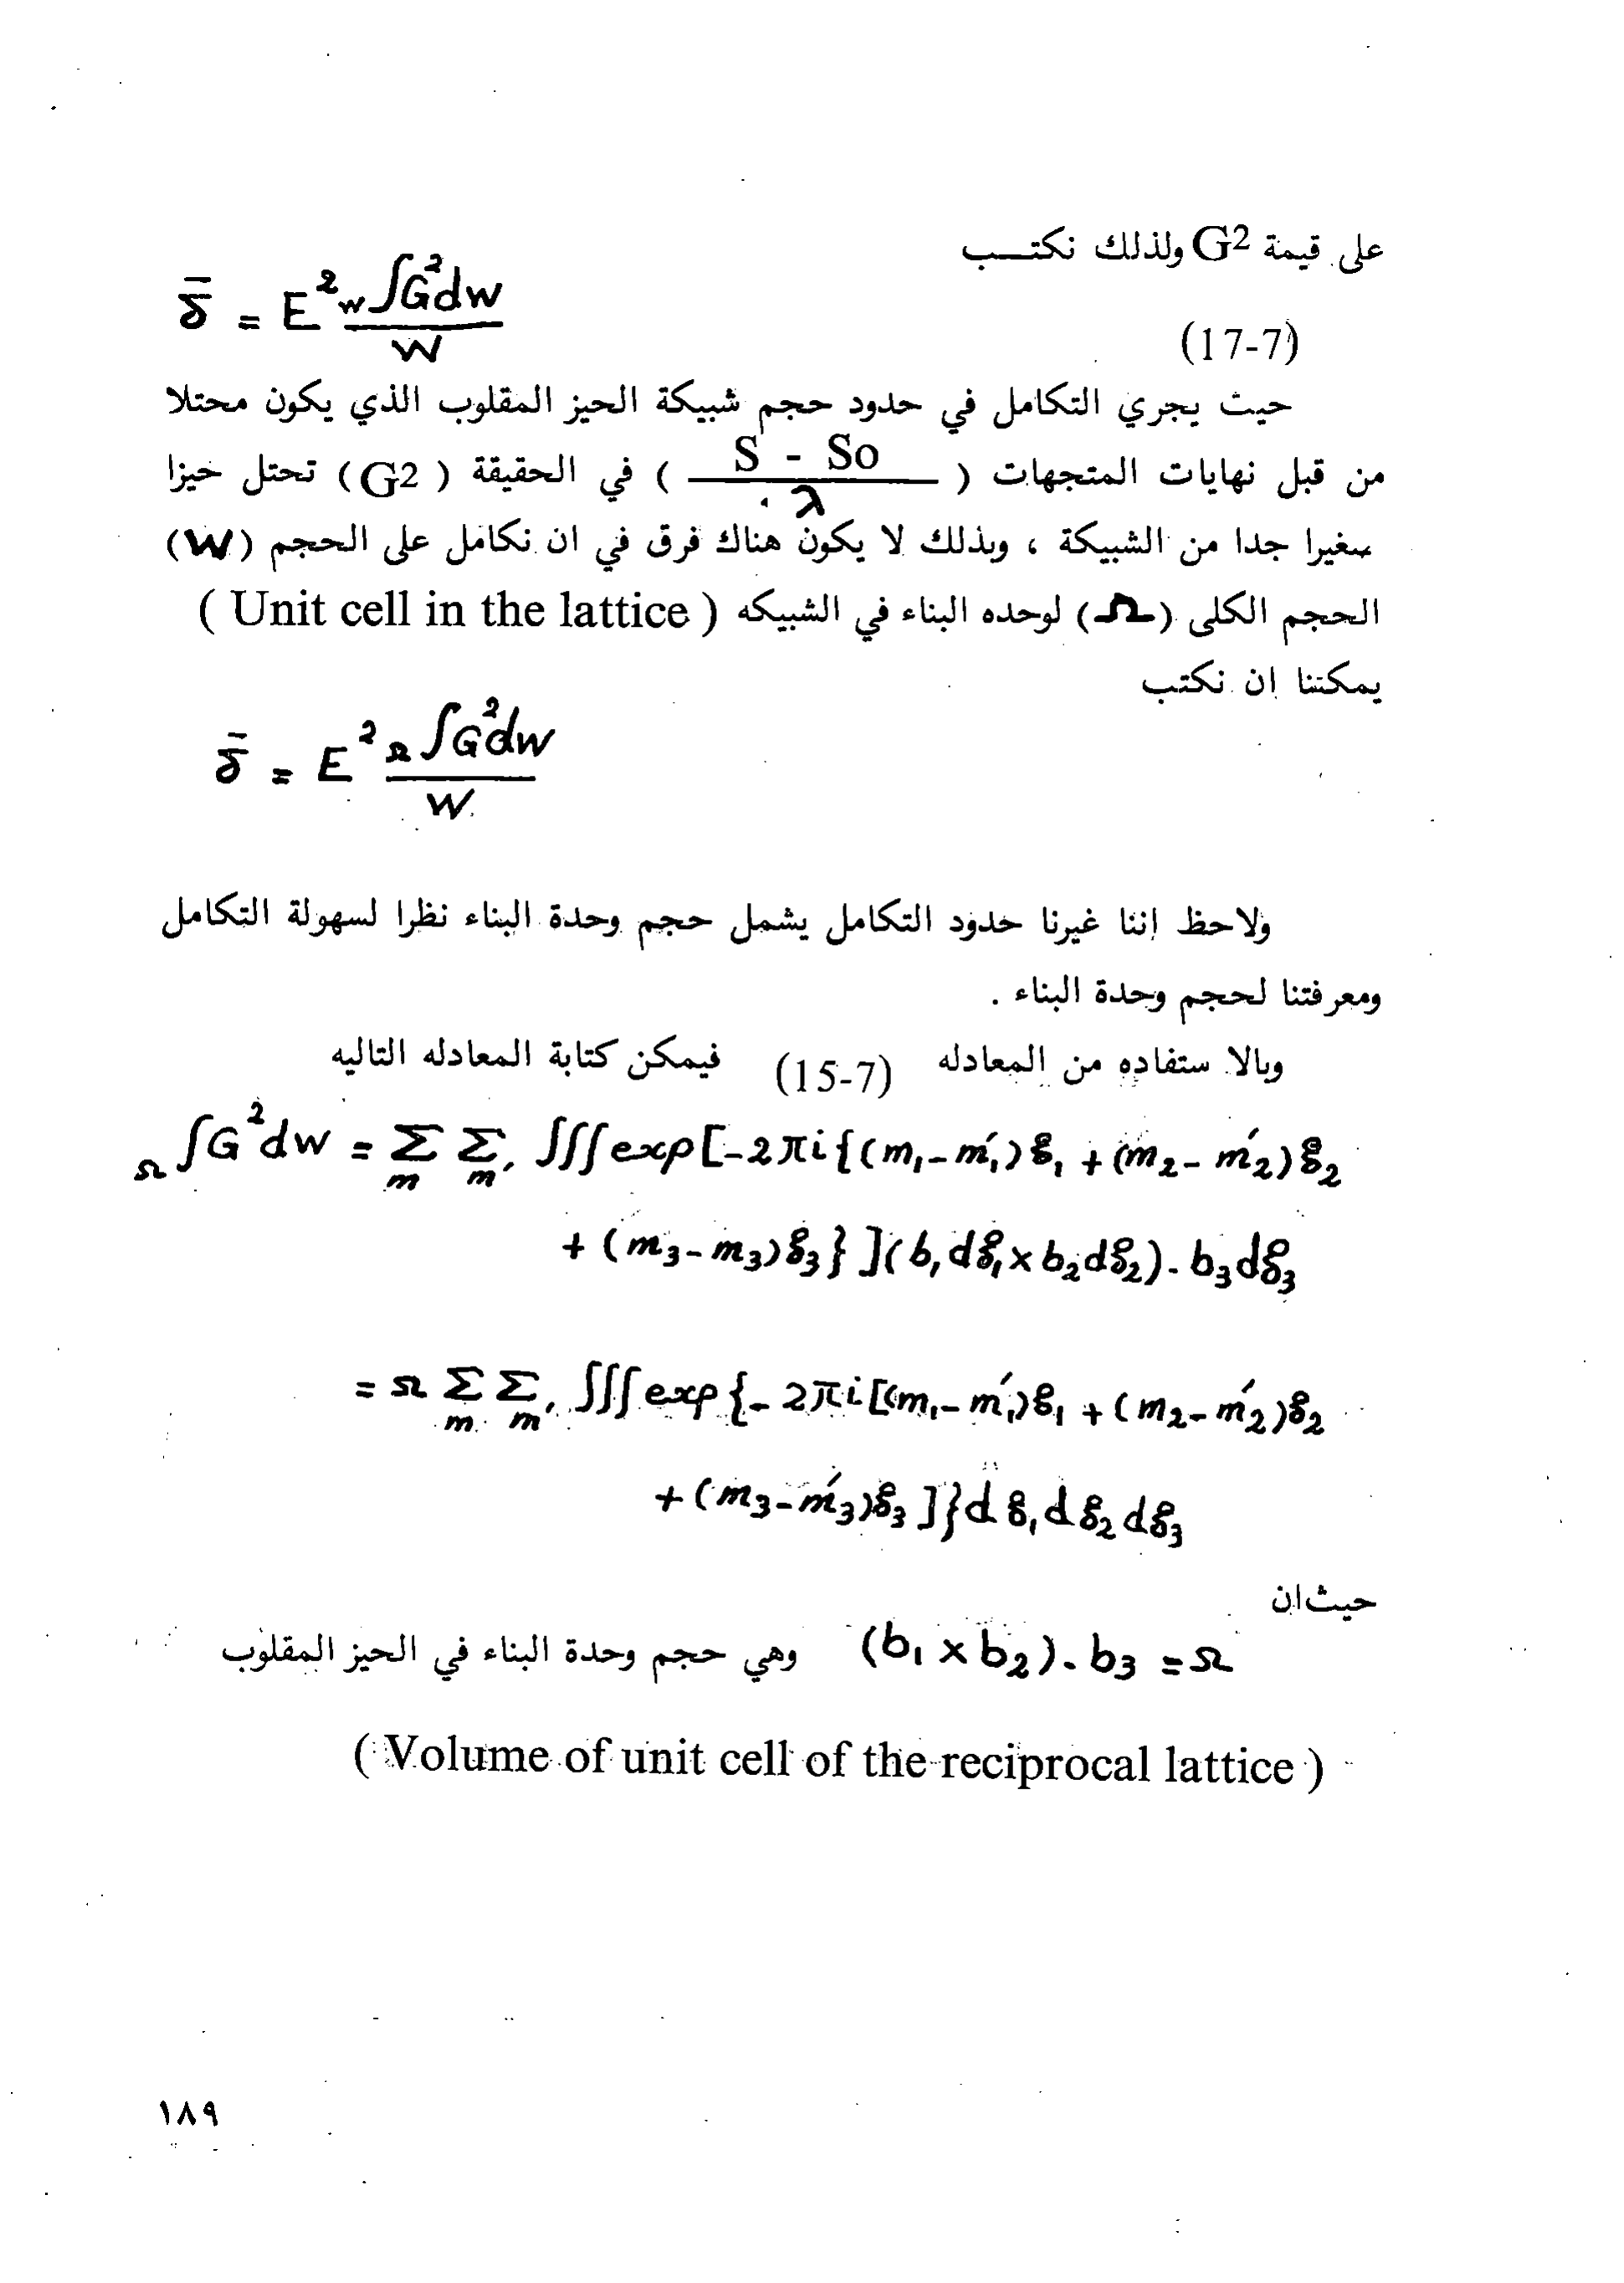 على قيمة G2 ولذلك نكتب
δ̄ = E² w∫G²dw / W
(17-7)
حيث يجري التكامل في حدود حجم شبيكة الحيز المقلوب الذي يكون محتلا
من قبل نهايات المتجهات ( S - So / λ ) في الحقيقة ( G2 ) تحتل حيزا
صغيرا جدا من الشبيكة ، وبذلك لا يكون هناك فرق في ان نكامل على الحجم (W)
الحجم الكلى (Ω) لوحده البناء في الشبيكه ( Unit cell in the lattice )
يمكننا ان نكتب
δ̄ = E² Ω∫G²dw / W
ولاحظ إننا غيرنا حدود التكامل يشمل حجم وحدة البناء نظرا لسهولة التكامل
ومعرفتنا لحجم وحدة البناء .
وبالا ستفاده من المعادله (15-7) فيمكن كتابة المعادله التاليه
Ω∫G²dw = Σm Σm' ∫∫∫exp[-2πi{(m₁-m₁')ξ₁ + (m₂-m₂')ξ₂
+ (m₃-m₃)ξ₃}](b₁dξ₁×b₂dξ₂).b₃dξ₃
= Ω Σm Σm' ∫∫∫exp{-2πi[(m₁-m₁')ξ₁ + (m₂-m₂')ξ₂
+ (m₃-m₃')ξ₃]}dξ₁dξ₂dξ₃
حيث ان
(b₁ × b₂).b₃ = Ω وهي حجم وحدة البناء في الحيز المقلوب
( Volume of unit cell of the reciprocal lattice )
١٨٩